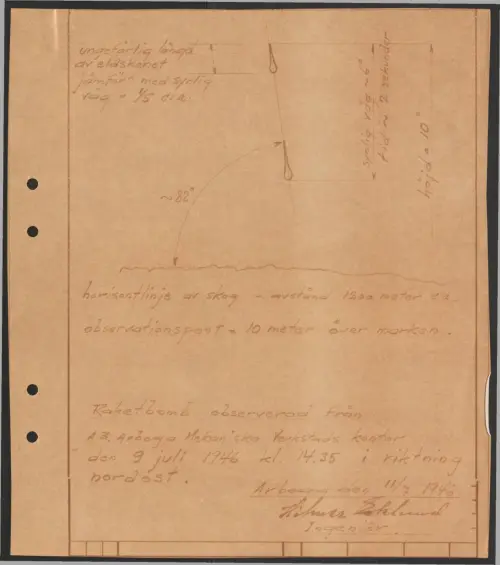 ungefärlig längd
av eldskenet
jämför med synlig
väg = 1/5 c:a
synlig väg ~ 6°
tid ~ 2 sekunder
höjd = 10°
~82°
horisontlinje av skog - avstånd 1500 meter c:a
observationspost = 10 meter över marken.
Raketbomb observerad från
A.B. Arboga Mekaniska Verkstads kontor
den 9 juli 1946 kl. 14.35 i riktning
nordost.
Arboga den 11/7 1946
Ingenjör